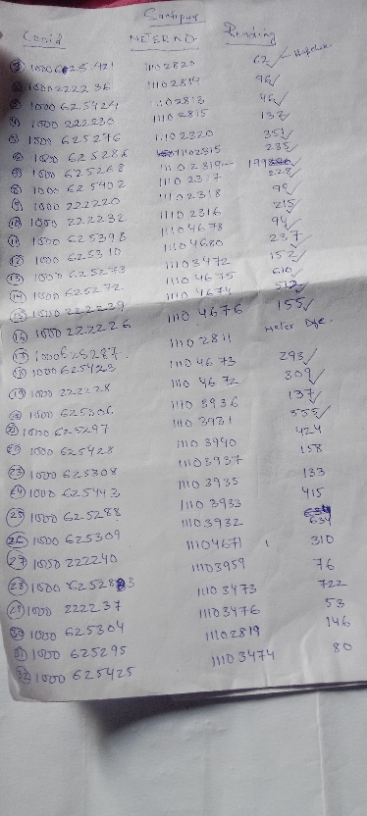 Conid METER NO. Reading
① 1000625421 11102820 62 ✓
② 1000222236 11102814 96 ✓
③ 1000625424 11102813 46 ✓
④ 1000222230 11102815 132 ✓
⑤ 1000625276 11102320 352 ✓
⑥ 1000625286 11102815 235 ✓
⑦ 1000625268 11102819
⑧ 1000625402 11102317 228 ✓
⑨ 1000222220 11102318 98 ✓
⑩ 1000222232 11102316 215 ✓
⑪ 1000625398 11104678 94 ✓
⑫ 1000625310 11104680 237 ✓
⑬ 1000625273 11103472 152 ✓
⑭ 1000625272 11104675 610 ✓
⑮ 1000222229 11104674 512 ✓
⑯ 1000222226 11104676 155 ✓
⑰ 1000625287 11102811 Meter Dfe.
⑱ 1000625423 11104673 293 ✓
⑲ 1000222228 11104672 309 ✓
⑳ 1000625306 11103936 137 ✓
㉑ 1000625297 11103931 555 ✓
㉒ 1000625428 11103940 424
㉓ 1000625308 11103937 158
㉔ 1000625443 11103935 133
㉕ 1000625288 11103933 415
㉖ 1000625309 11103932 634
㉗ 1000222240 11104671 310
㉘ 1000625283 11103959 76
㉙ 1000222237 11103473 722
㉚ 1000625304 11103476 53
㉛ 1000625295 11102819 146
㉜ 1000625425 11103474 80